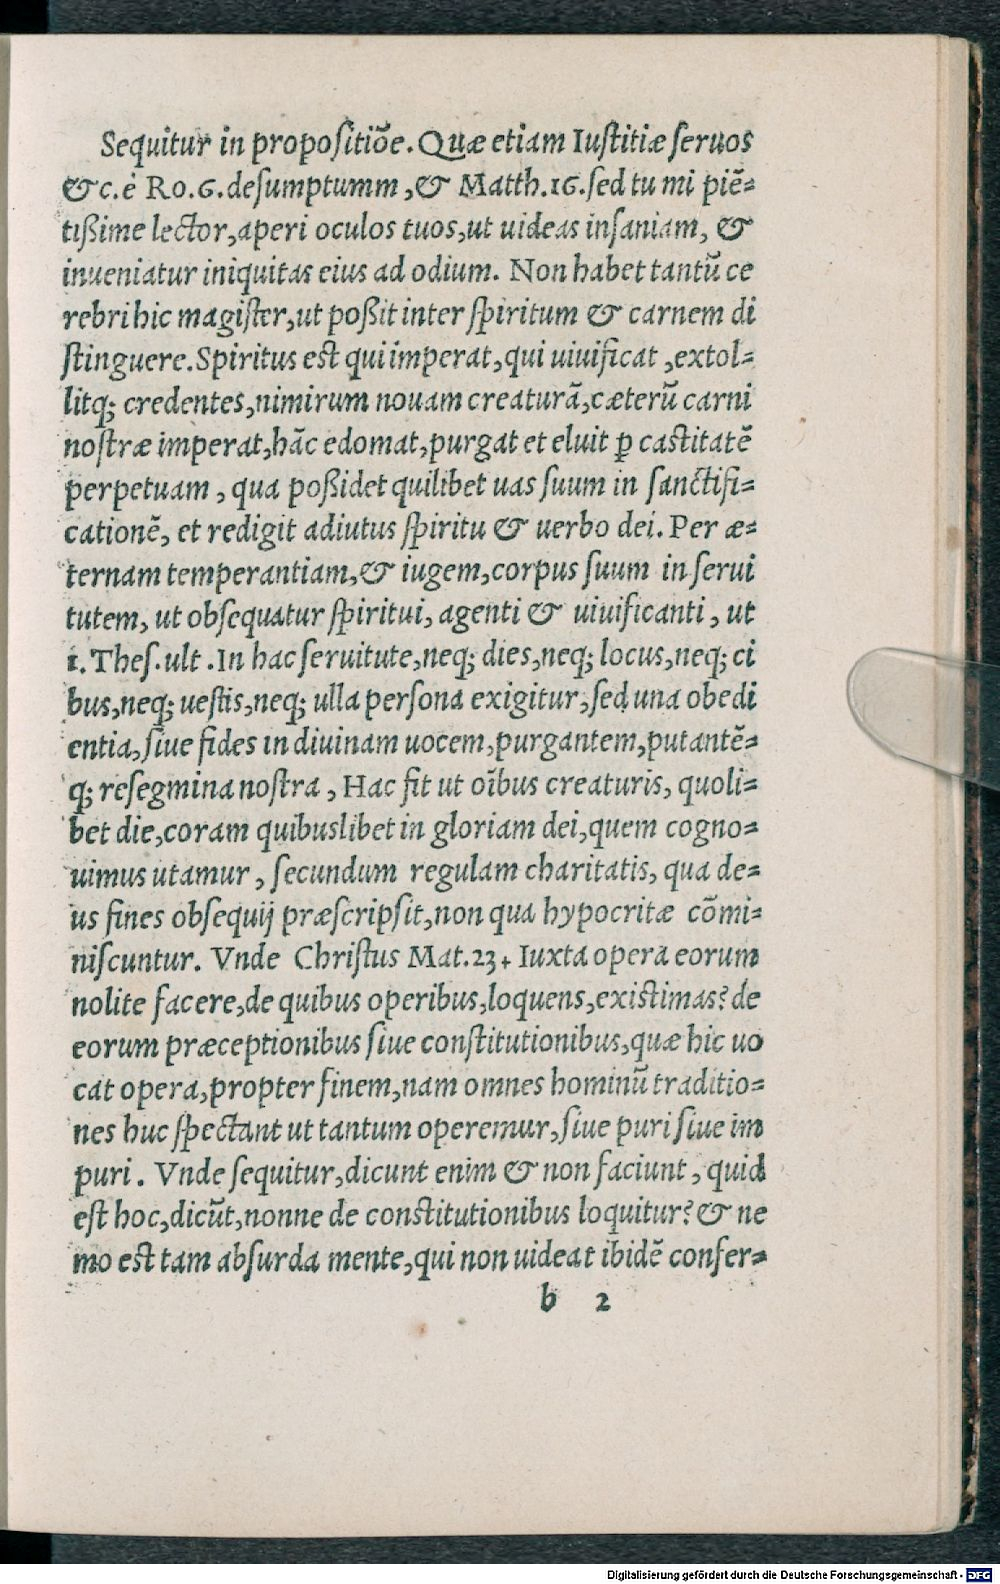 Sequitur in propositiōe. Quæ etiam Iustitiæ seruos
& c. ė Ro.6. desumptumm, & Matth.16. sed tu mi piē=
tißime lector, aperi oculos tuos, ut uideas insaniam, &
inueniatur iniquitas eius ad odium. Non habet tantū ce
rebri hic magister, ut poßit inter spiritum & carnem di
stinguere. Spiritus est qui imperat, qui uiuificat, extol=
litq; credentes, nimirum nouam creaturā, cæterū carni
nostræ imperat, hāc edomat, purgat et eluit ꝑ castitatē
perpetuam, qua poßidet quilibet uas suum in sanctifi=
cationē, et redigit adiutus spiritu & uerbo dei. Per æ=
ternam temperantiam, & iugem, corpus suum in serui
tutem, ut obsequatur spiritui, agenti & uiuificanti, ut
1. Thes. ult. In hac seruitute, neq; dies, neq; locus, neq; ci
bus, neq; uestis, neq; ulla persona exigitur, sed una obedi
entia, siue fides in diuinam uocem, purgantem, putantē=
q; resegmina nostra, Hac fit ut oībus creaturis, quoli=
bet die, coram quibuslibet in gloriam dei, quem cogno=
uimus utamur, secundum regulam charitatis, qua de=
us fines obsequij præscripsit, non qua hypocritæ cōmi=
niscuntur. Vnde Christus Mat.23. Iuxta opera eorum
nolite facere, de quibus operibus, loquens, existimas? de
eorum præceptionibus siue constitutionibus, quæ hic uo
cat opera, propter finem, nam omnes hominū traditio=
nes huc spectant ut tantum operemur, siue puri siue im
puri. Vnde sequitur, dicunt enim & non faciunt, quid
est hoc, dicūt, nonne de constitutionibus loquitur? & ne
mo est tam absurda mente, qui non uideat ibidē confer=
b 2
Digitalisierung gefördert durch die Deutsche Forschungsgemeinschaft - DFG